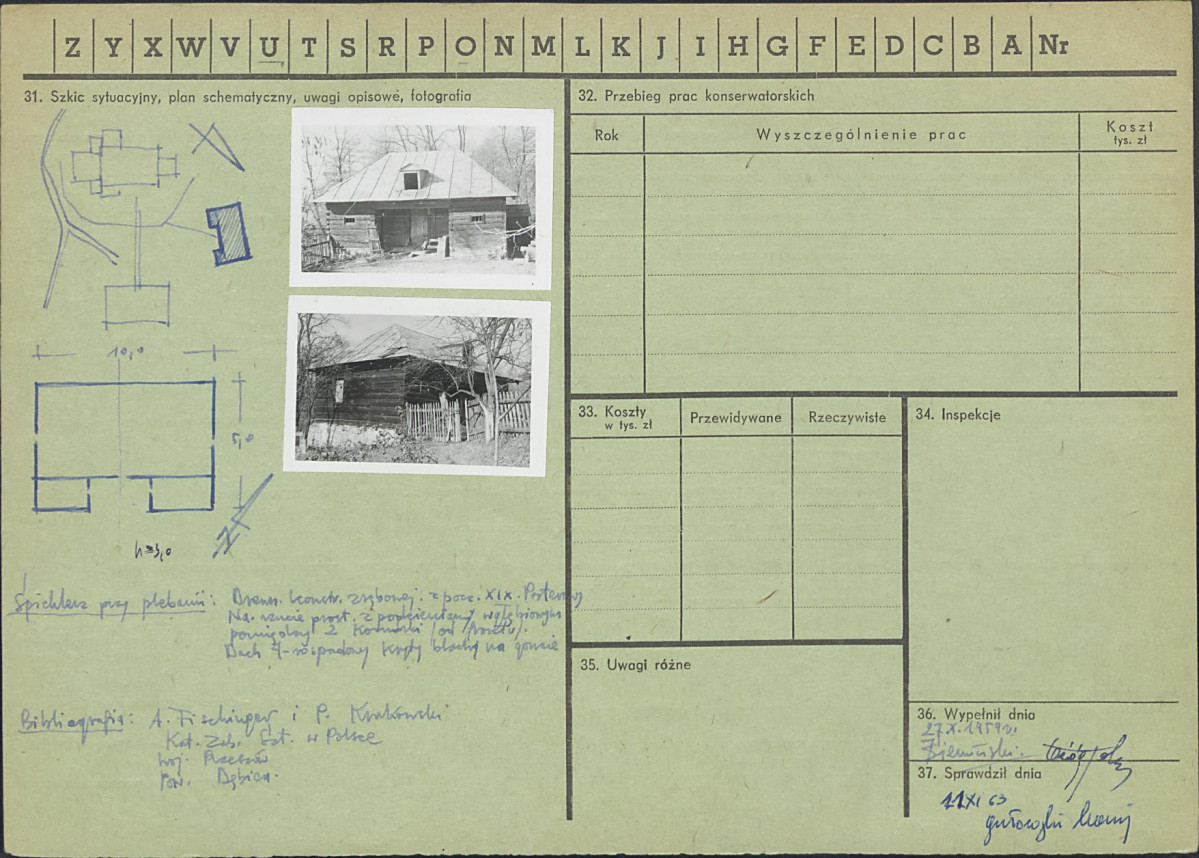 Z Y X W V U T S R P O N M L K J I H G F E D C B A Nr
31. Szkic sytuacyjny, plan schematyczny, uwagi opisowe, fotografia
10,0
5,0
N
h=3,0
Śpichlerz przy plebanii: Drewn. konstr. zrębowej. z pocz. XIX.
Na rzucie prost. z podcieniami wgłębionym
pomiędzy 2 komórki (od frontu).
Dach 4-rospadowy kryty blachą na goncie
Bibliografia: A. Fischinger i P. Krakowski
Kat. Zab. Szt. w Polsce
Woj. Rzeszów
Pow. Dębica.
32. Przebieg prac konserwatorskich
Rok
Wyszczególnienie prac
Koszt
tys. zł
33. Koszty
w tys. zł
Przewidywane
Rzeczywiste
34. Inspekcje
35. Uwagi różne
36. Wypełnił dnia
27.X.1959 r.
37. Sprawdził dnia
11 XI 63